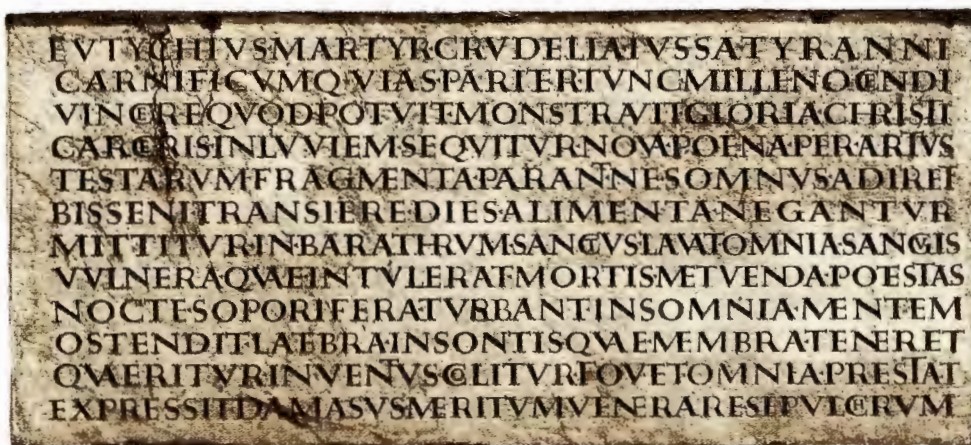 EVTYCHIVS·MARTYR·CRVDELIA·IVSSA·TYRANNI
CARNIFICVMQ·VIAS·PARITER·TVNC·MILLE·NOCENDI
VINCERE·QVOD·POTVIT·MONSTRAVIT·GLORIA·CHRISTI
CARCERIS·INLVVIEM·SEQVITVR·NOVA·POENA·PER·ARTVS
TESTARVM·FRAGMENTA·PARANT·NE·SOMNVS·ADIRET
BISSENI·TRANSIERE·DIES·ALIMENTA·NEGANTVR
MITTITVR·IN·BARATHRVM·SANCTVS·LAVAT·OMNIA·SANGVIS
VVLNERA·QVAE·INTVLERAT·MORTIS·METVENDA·POTESTAS
NOCTE·SOPORIFERA·TVRBANT·INSOMNIA·MENTEM
OSTENDIT·LATEBRA·INSONTIS·QVAE·MEMBRA·TENERET
QVAERITVR·INVENTVS·COLITVR·FOVET·OMNIA·PRESTAT
EXPRESSIT·DAMASVS·MERITVM·VENERARE·SEPVLCRVM